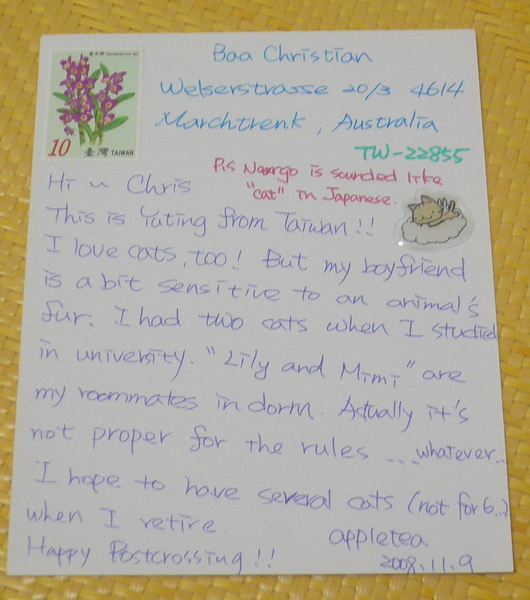 Baa Christian
Welserstrasse 20/3 4614
Marchtrenk, Australia
TW-22855
10 臺灣 TAIWAN
P.S Namgo is sounded like
"cat" in Japanese.
Hi ~ Chris
This is Yuting from Taiwan!!
I love cats, too! But my boyfriend
is a bit sensitive to an animal's
fur. I had two cats when I studied
in university. "Lily and Mimi" are
my roommates in dorm. Actually it's
not proper for the rules ... whatever..
I hope to have several cats (not for 6..)
when I retire.
appletea
Happy Postcrossing!!
2008.11.9